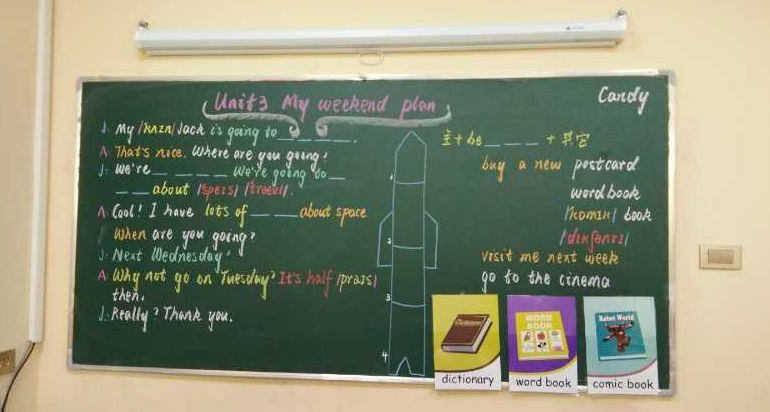 Unit3 My weekend plan
Candy
J: My /kʌzn/ Jack is going to _ _ _.
A: That's nice. Where are you going?
J: We're _ _ _ _. We're going to _
_ _ about /speɪs/ /trævl/.
A: Cool! I have lots of _ _ about space
When are you going?
J: Next Wednesday.
A: Why not go on Tuesday? It's half /praɪs/
then.
J: Really? Thank you.
1
2
3
4
主+be _ _ _ + 其它
buy a new postcard
word book
/kɒmɪk/ book
/dɪkʃənrɪ/
visit me next week
go to the cinema
Dictionary
dictionary
WORD BOOK
word book
Robot World
comic book